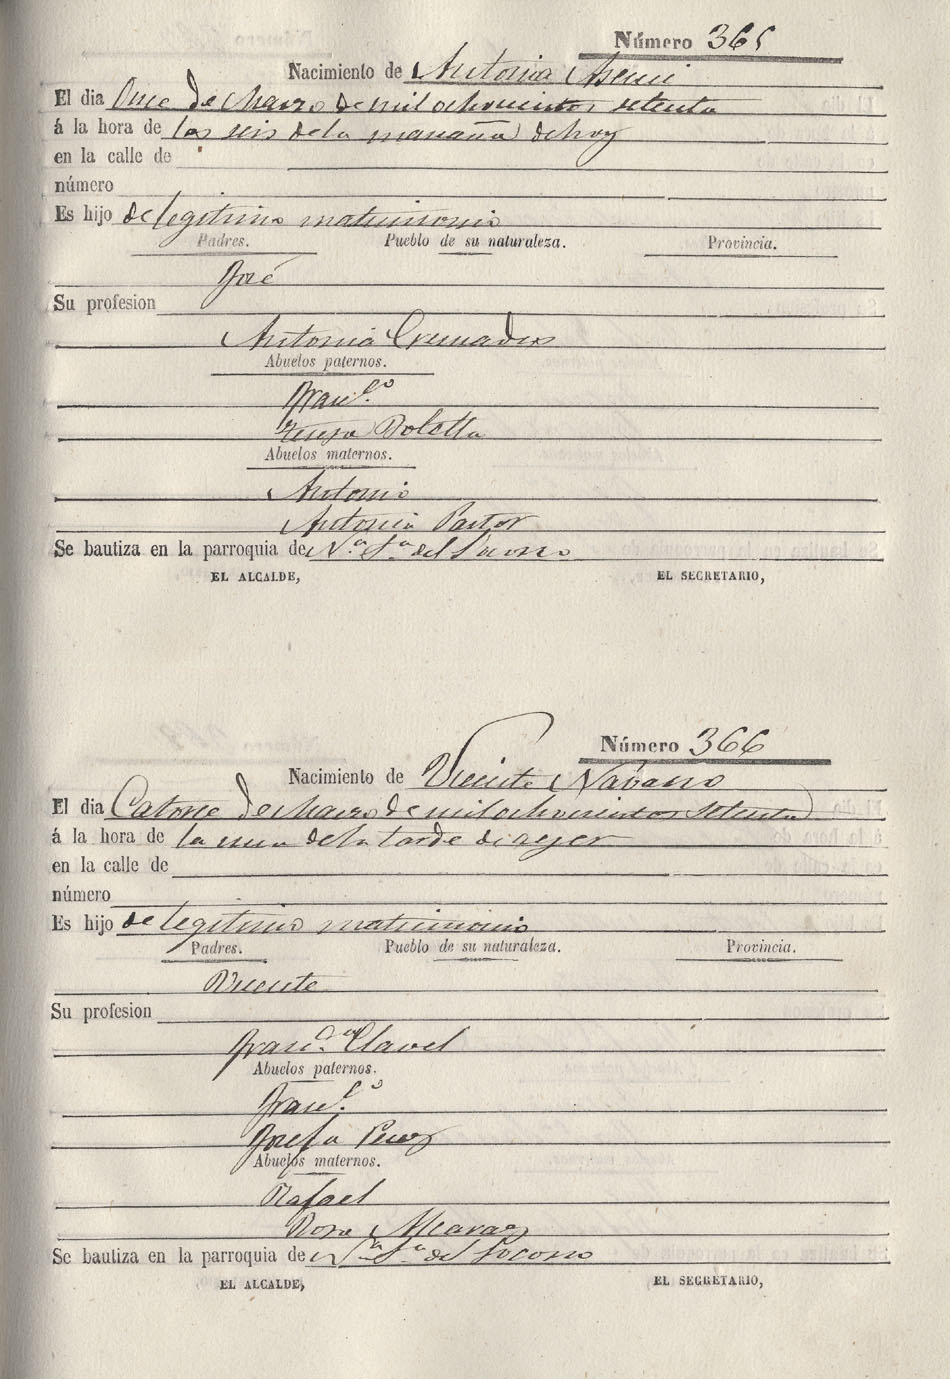 Número 365
Nacimiento de Antonia Asensi
El dia Once de Marzo de mil ochocientos setenta
á la hora de las seis de la mañana de hoy
en la calle de
número
Es hijo de legitimo matrimonio
Padres. Pueblo de su naturaleza. Provincia.
José
Su profesion
Antonia Cremades
Abuelos paternos.
Franco.
Teresa Bolella
Abuelos maternos.
Antonio
Antonia Pastor
Se bautiza en la parroquia de Na. Sa. del Socorro
EL ALCALDE, EL SECRETARIO,
Número 366
Nacimiento de Vicente Navarro
El dia Catorce de Marzo de mil ochocientos setenta
á la hora de la una de la tarde de ayer
en la calle de
número
Es hijo de legitimo matrimonio
Padres. Pueblo de su naturaleza. Provincia.
Vicente
Su profesion
Franca. Clavel
Abuelos paternos.
Franco.
Josefa Perez
Abuelos maternos.
Rafael
Rosa Alcaraz
Se bautiza en la parroquia de Na. Sa. del Socorro
EL ALCALDE, EL SECRETARIO,